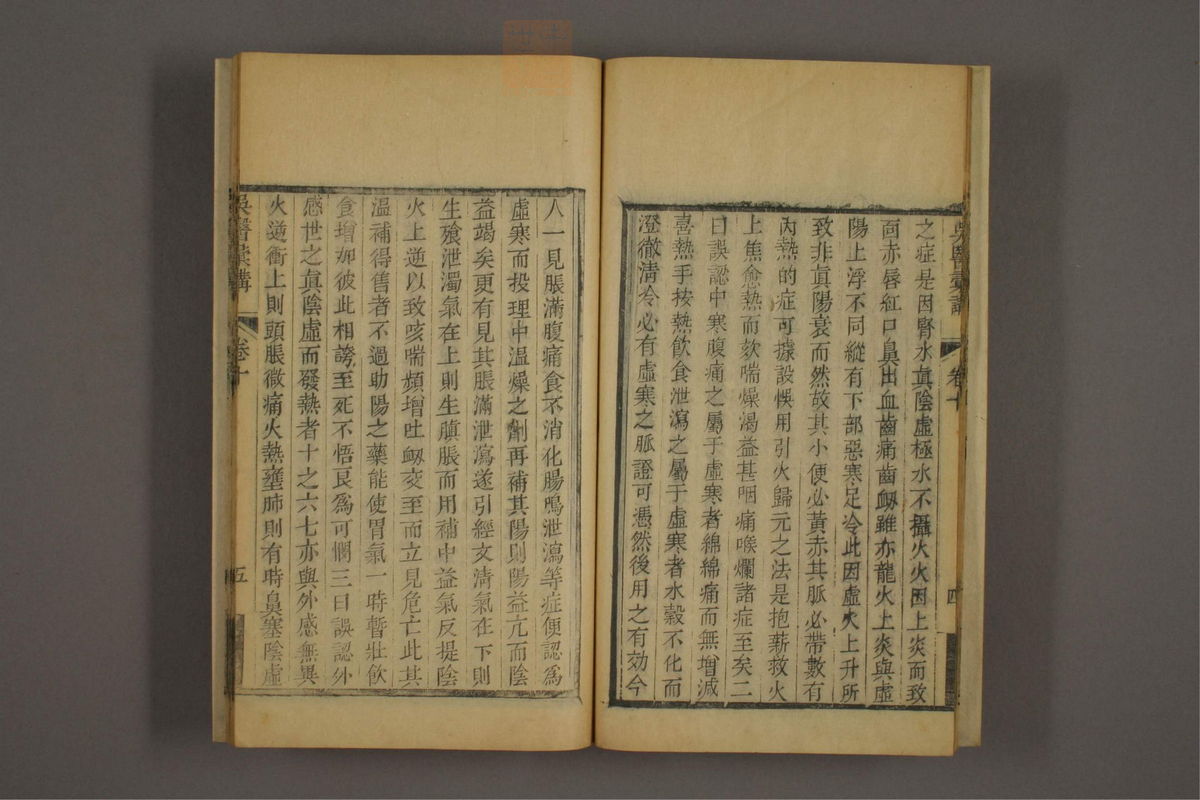 吳醫彙講
卷十
四
之症是因腎水眞陰虛極水不攝火火因上炎而致
面赤唇紅口鼻出血齒痛齒衂雖亦龍火上炎與虛
陽上浮不同縱有下部惡寒足冷此因虛火上升所
致非眞陽衰而然故其小便必黃赤其脈必帶數有
內熱的症可據設悞用引火歸元之法是抱薪救火
上焦愈熱而欬喘燥渴益甚咽痛喉爛諸症至矣二
曰誤認中寒腹痛之屬于虛寒者綿綿痛而無增減
喜熱手按熱飮食泄瀉之屬于虛寒者水穀不化而
澄徹淸冷必有虛寒之脈證可憑然後用之有効今
人一見脹滿腹痛食不消化腸鳴泄瀉等症便認爲
虛寒而投理中温燥之劑再補其陽則陽益亢而陰
益竭矣更有見其脹滿泄瀉遂引經文淸氣在下則
生飱泄濁氣在上則生䐜脹而用補中益氣反提陰
火上逆以致咳喘頻增吐衂交至而立見危亡此其
温補得售者不過助陽之藥能使胃氣一時暫壯飮
食增加彼此相誇至死不悟良爲可憫三曰誤認外
感世之眞陰虛而發熱者十之六七亦與外感無異
火逆衝上則頭脹微痛火熱壅肺則有時鼻塞陰虛
吳醫彙講
卷十
五